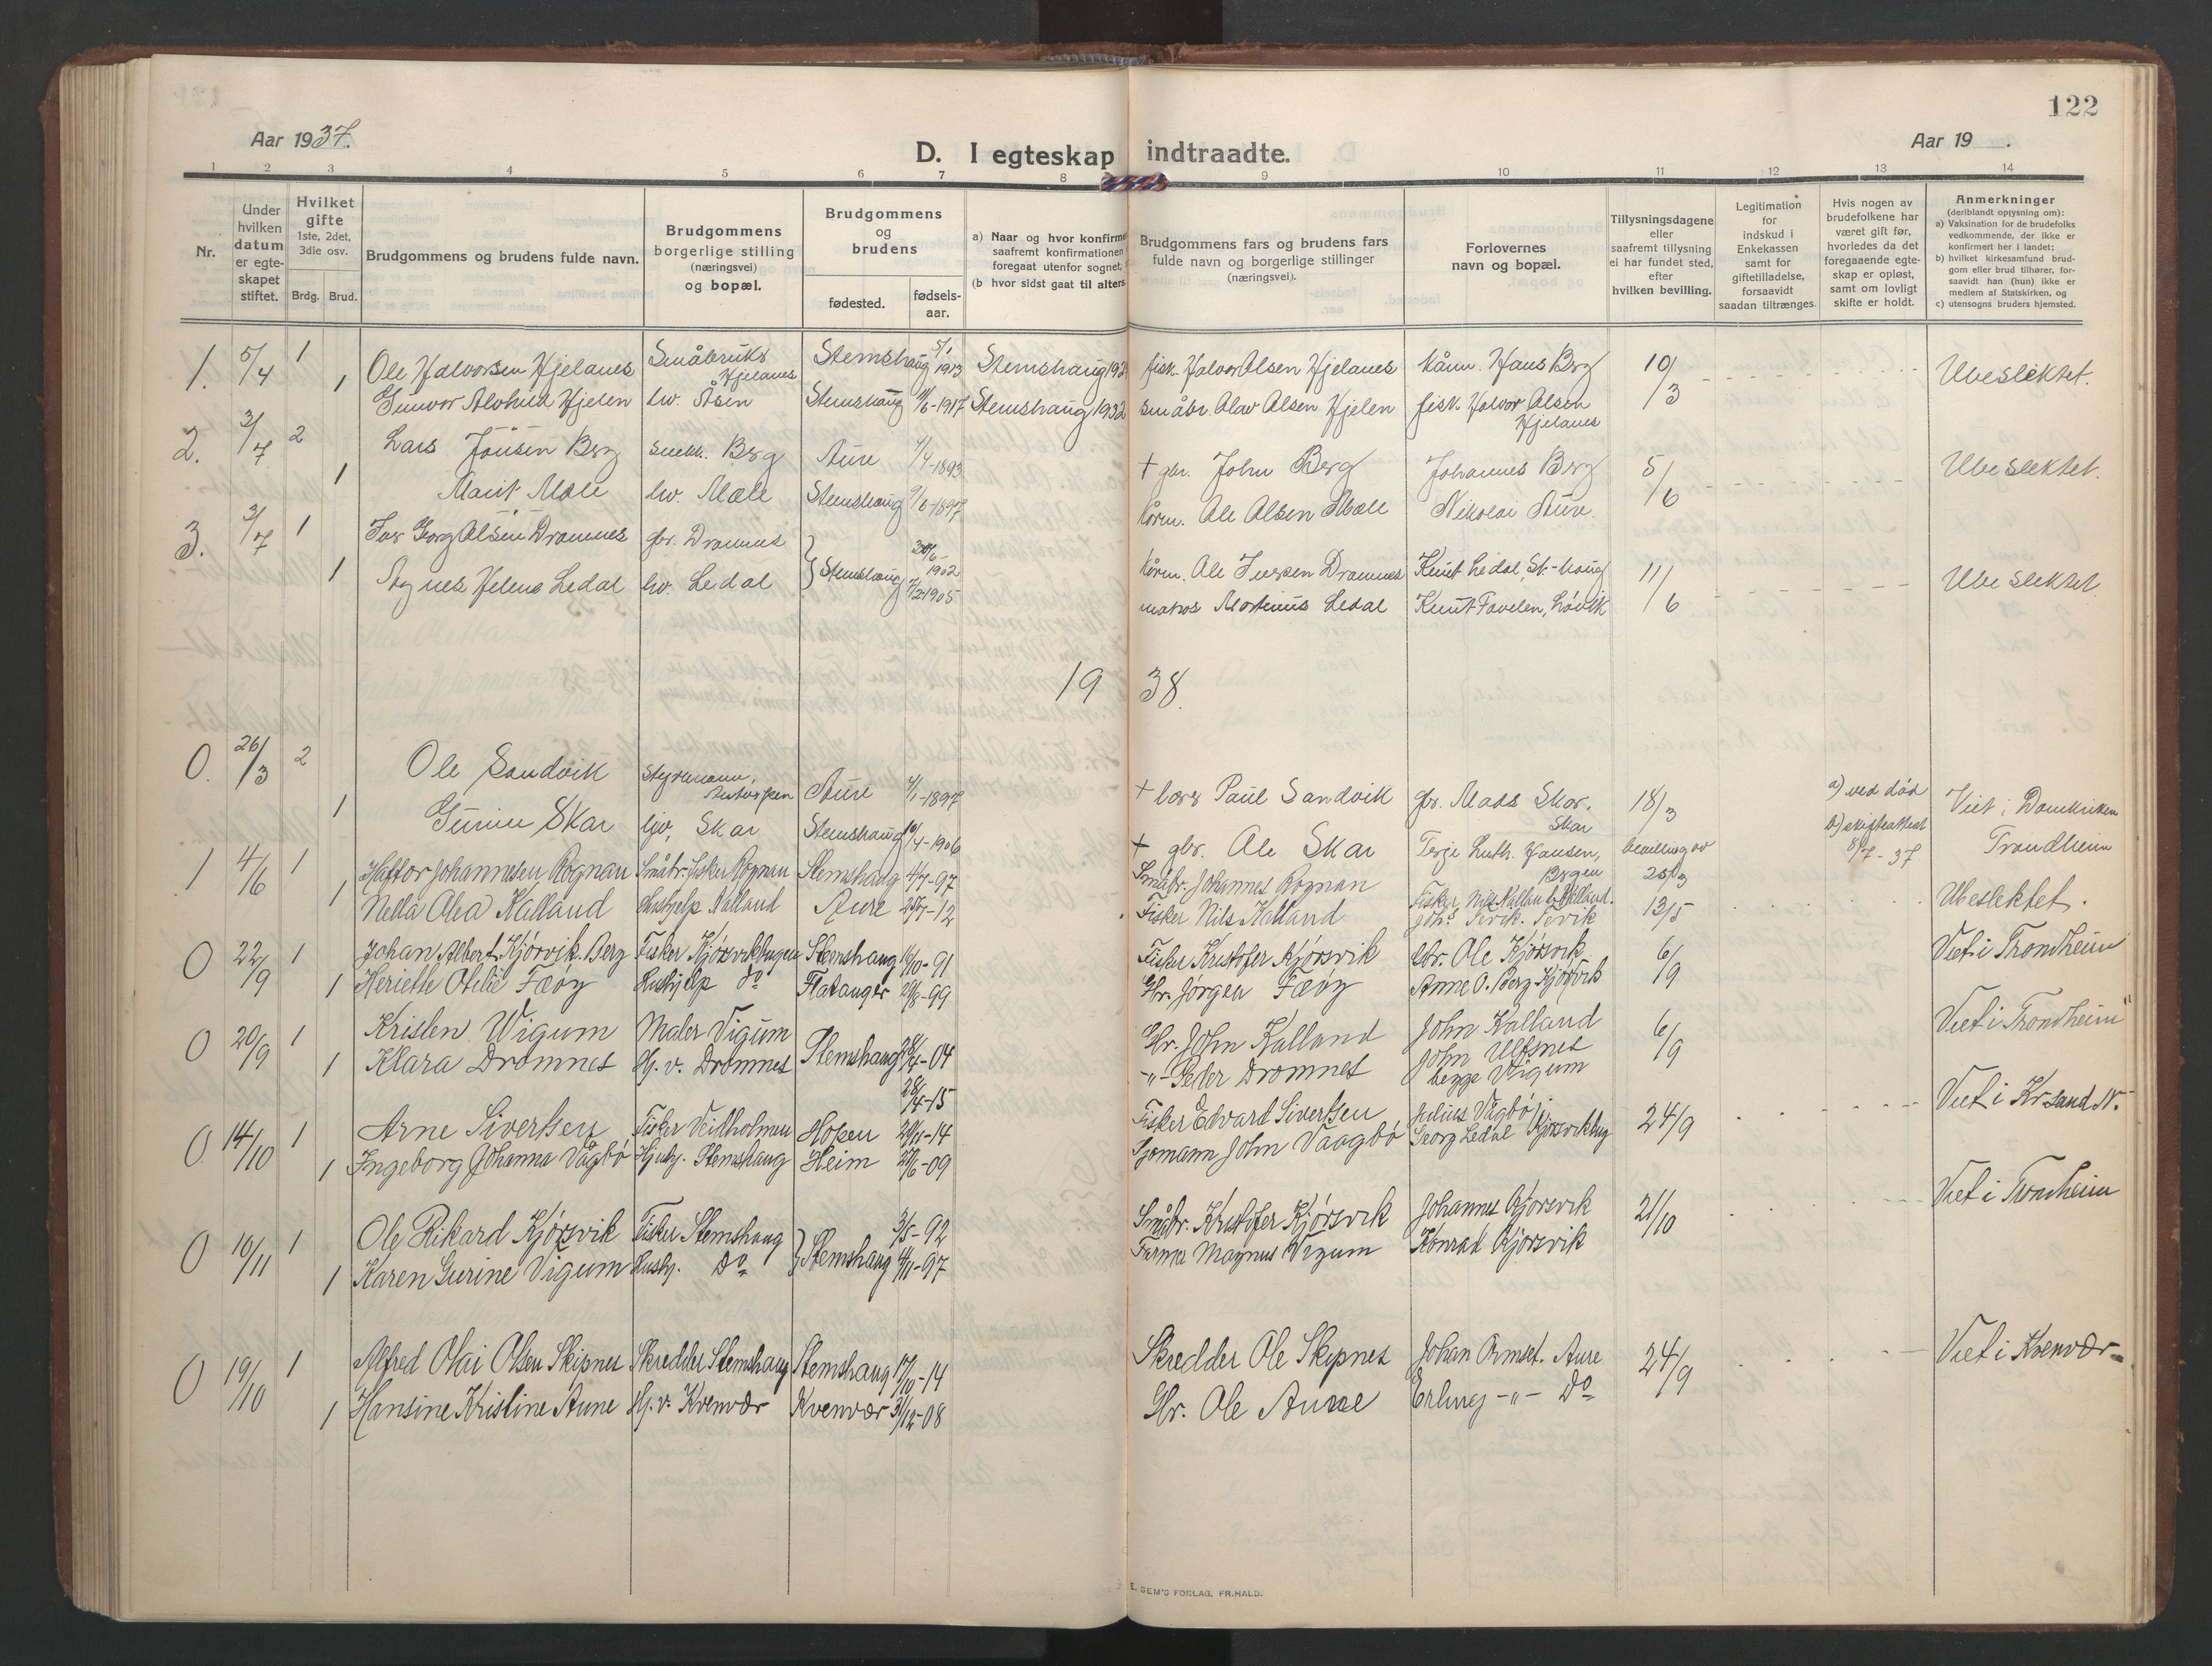 122
Aar 1937.
D. I egteskap indtraadte.
Aar 19 .
1 2 3 4 5 6 7 8 9 10 11 12 13 14
Nr.
Under hvilken datum er egteskapet stiftet.
Hvilket gifte 1ste, 2det, 3die osv.
Brdg. Brud.
Brudgommens og brudens fulde navn.
Brudgommens borgerlige stilling (næringsvei) og bopæl.
Brudgommens og brudens
fødested. fødsels-aar.
a) Naar og hvor konfirme
saafremt konfirmationen
foregaat utenfor sognet,
(b hvor sidst gaat til alters
Brudgommens fars og brudens fars
fulde navn og borgerlige stillinger
(næringsvei).
Forlovernes navn og bopæl.
Tillysningsdagene eller saafremt tillysning ei har fundet sted, efter hvilken bevilling.
Legitimation for indskud i Enkekassen samt for giftetilladelse, forsaavidt saadan tiltrænges.
Hvis nogen av brudefolkene har været gift før, hvorledes da det foregaaende egteskap er opløst, samt om lovligt skifte er holdt.
Anmerkninger
(deriblandt opiysning om):
a) Vaksination for de brudefolks vedkommende, der ikke er konfirmert her i landet;
b) hvilket kirkesamfund brudgom eller brud tilhører, forsaavidt han (hun) ikke er medlem af Statskirken, og
c) utensogns bruders hjemsted.
1. 5/4 1 Ole Halvorsen Hjelanes Småbruks Hjelanes Stemshaug 5/1 1913 Stemshaug 192 fisk. Halvor Olsen Hjelanes Hans Berg 10/3 Ubeslektet.
1 Gunvor Alvhild Hjelen hv. Åsen Stemshaug 1917 Stemshaug 1932 småbr. Olav Olsen Hjelen fisk. Halvor Olsen Hjelanes
2. 3/7 2 Lars Jonsen Berg snekk. Berg Aure 1/4-1893 + gbr. John Berg Johannes Berg 5/6 Ubeslektet.
1 Marit Mæle hv. Mæle Stemshaug 9/6-1897 Ole Olsen Mæle Nikolai Aure.
3. 3/7 1 Iver Georg Olsen Dromnes gbr. Dromnes Stemshaug 30/6-1902 Ole Iversen Dromnes Knut Ledal, St.-haug 11/6 Ubeslektet
1 Agnes Helene Ledal hv. Ledal 7/2-1905 Martinus Ledal Knut Tovelen, Løvik
19 38.
0. 26/3 2 Ole Sandvik Styrmann, Aure 4/1-1897 + Paul Sandvik gbr. Mads Skar. Skar 18/3 a) ved død Viet i Domkirken
1 Gunne Skar hjv. Skar Stemshaug 10/4-1906 + gbr. Ole Skar Terje Luth. Hansen, Bergen bevilling av 25/3 b) skifteattest 8/7-37 Trondheim
1 4/6 1 Haftor Johannesen Rognan Småbr. fisker Rognan Stemshaug 4/7-97 Småbr. Johannes Rognan Fisker Nils Kalland, Kalland. 13/5 Ubeslektet.
1 Nella Olea Kalland Hushjelp Kalland Aure 25/7-12 Fisker Nils Kalland Johs
0 22/9 1 Johan Albert Kjørsvik Berg Fisker Kjørsvikbugen Stemshaug 16/10-91 Fisker Kristofer Kjørsvik Gbr. Ole Kjørsvik 6/9 Viet i Trondheim
1 Heriette Otelie Fæøy Hushjelp do Flatanger 29/8-99 Gbr. Jørgen Fæøy Anne O. Berg Kjørsvik
0 20/9 1 Kristen Wigum Maler Vigum Stemshaug 28/4-04 Gbr. John Kalland John Kalland 6/9 Viet i Trondheim
1 Klara Dromnes Hj. v. Dromnes 28/4-15 -"- Peder Dromnes John Ulfsnes begge Vigum
0 14/10 1 Arne Sivertsen Fisker Veidholmen Hopen 20/11-14 Fisker Edvart Sivertsen Julius Vågbø 24/9 Viet i Kr.sand N.
1 Ingeborg Johanna Vågbø Hjv. Stemshaug Heim 28/6-09 Sjømann John Vaagbø Georg Ledal Kjørsvikbug
0 16/11 1 Ole Rikard Kjørsvik Fisker Stemshaug Stemshaug 3/5-92 Småbr. Kristofer Kjørsvik Johannes Kjørsvik 21/10 Viet i Trondheim
1 Karen Gurine Vigum Hushj. do 4/11-97 Farmer Magnus Vigum Konrad Kjørsvik
0 19/10 1 Alfred Olai Olsen Skipnes Skredder Stemshaug Stemshaug 17/10-14 Skredder Ole Skipnes Johan Ormset. Aure 24/9 Viet i Kvenvær
1 Hansine Kristine Aune Hj. v. Kvenvær Kvenvær 31/12-08 Gbr. Ole Aune Erling -"- do
E. SEM'S FORLAG, FR.HALD.